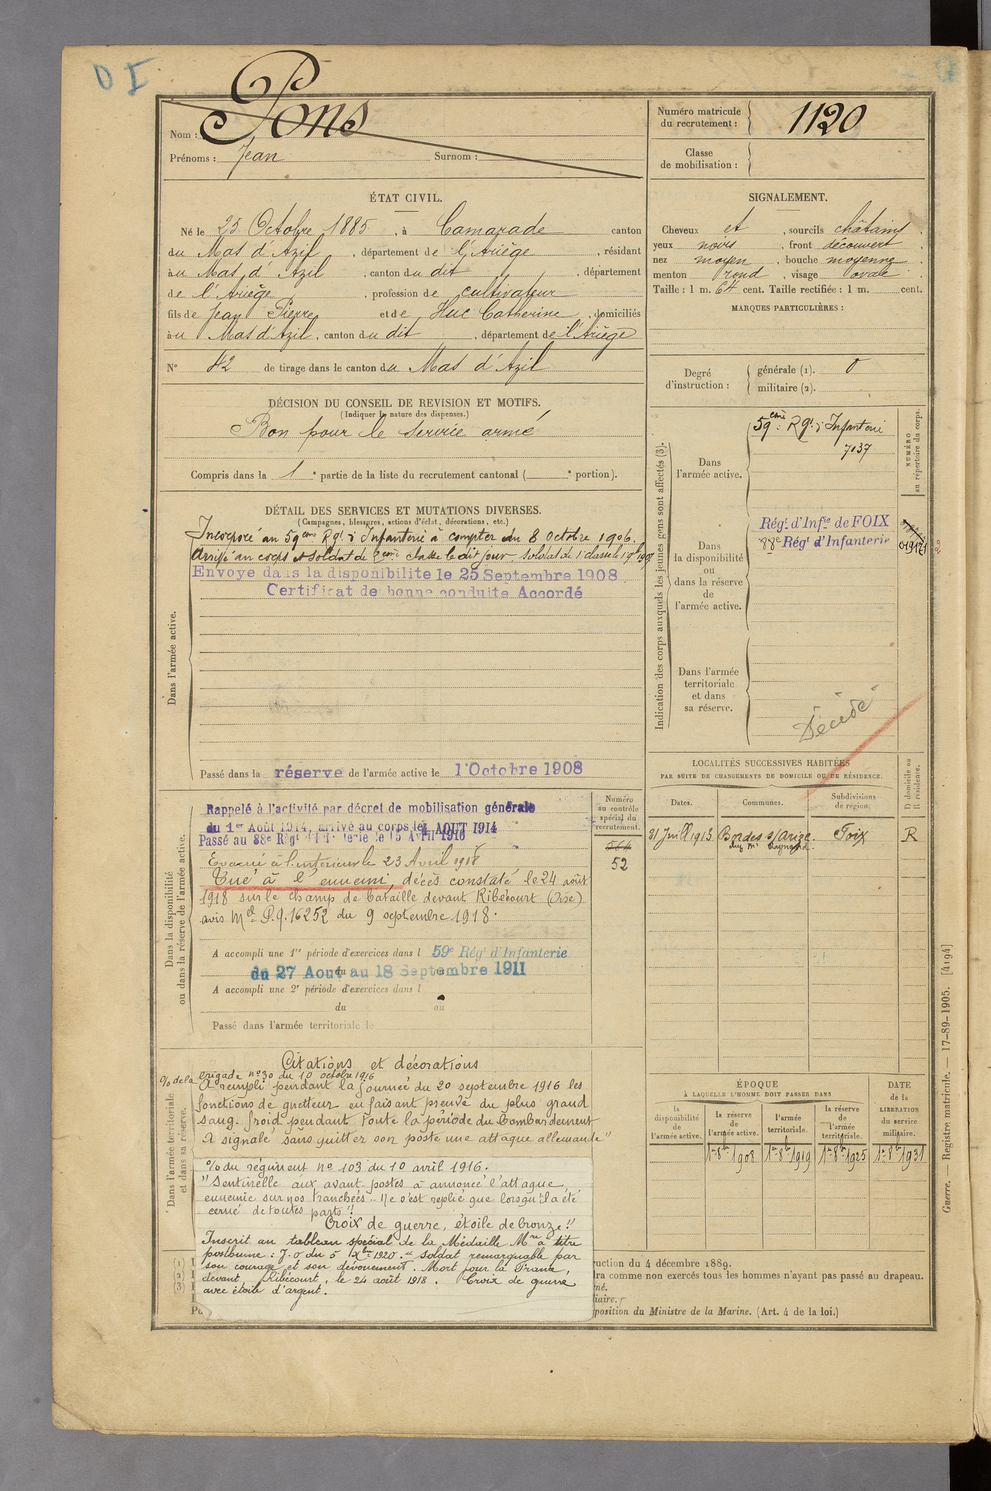 Nom : Pons
Prénoms : Jean Surnom :
Numéro matricule du recrutement : 1120
Classe de mobilisation :
ÉTAT CIVIL.
Né le 25 Octobre 1885, à Camarade canton
du Mas d'Azil, département de l'Ariège, résidant
au Mas d'Azil, canton du dit, département
de l'Ariège, profession de cultivateur
fils de Jean Pierre et de Huc Catherine, domiciliés
au Mas d'Azil, canton du dit, département de l'Ariège
N° 42 de tirage dans le canton du Mas d'Azil
SIGNALEMENT.
Cheveux et, sourcils châtains
yeux noirs, front découvert
nez moyen, bouche moyenne
menton rond, visage ovale.
Taille : 1 m. 64 cent. Taille rectifiée : 1 m. cent.
MARQUES PARTICULIÈRES :
Degré d'instruction : générale (1). 0
militaire (2).
DÉCISION DU CONSEIL DE REVISION ET MOTIFS.
(Indiquer la nature des dispenses.)
Bon pour le service armé
Compris dans la 1e partie de la liste du recrutement cantonal ( e portion).
DÉTAIL DES SERVICES ET MUTATIONS DIVERSES.
(Campagnes, blessures, actions d'éclat, décorations, etc.)
Dans l'armée active.
Incorporé au 59ème Rgt d'Infanterie à compter du 8 Octobre 1906.
Arrivé au corps et soldat de 2ème classe le dit jour. Soldat de 1e classe le
Envoye dans la disponibilite le 25 Septembre 1908
Certificat de bonne conduite Accordé
Passé dans la réserve de l'armée active le 1 Octobre 1908
Indication des corps auxquels les jeunes gens sont affectés (3).
NUMÉRO au répertoire du corps.
Dans l'armée active.
59ème Rgt d'Infanterie
7137
Dans la disponibilité ou dans la réserve de l'armée active.
Régt d'Infie de FOIX
88e Régt d'Infanterie
Dans l'armée territoriale et dans sa réserve.
Décédé
LOCALITÉS SUCCESSIVES HABITÉES
PAR SUITE DE CHANGEMENTS DE DOMICILE OU DE RÉSIDENCE.
D domicile ou R résidence.
Dates. Communes. Subdivisions de région.
21 Juill 1913 Bordes s/Arize. Foix R
Dans la disponibilité ou dans la réserve de l'armée active.
Numéro au contrôle spécial du recrutement.
52
Rappelé à l'activité par décret de mobilisation générale
du 1er Août 1914, arrivé au corps le 4 AOUT 1914
Passé au 88e Régt d'Infanterie le 15 Avril 1916
Evacué à l'intérieur le 23 Avril 1918
Tué à l'ennemi, décès constaté le 24 août
1918 sur le champ de bataille devant Ribécourt (Oise)
avis Mel P.q. 16252 du 9 septembre 1918.
A accompli une 1re période d'exercices dans l 59e Régt d'Infanterie
du 27 Aout au 18 Septembre 1911
A accompli une 2e période d'exercices dans l
du au
Passé dans l'armée territoriale le
Dans l'armée territoriale et dans sa réserve.
Citations et décorations
% de la brigade n°30 du 10 octobre 1916
A rempli pendant la journée du 20 septembre 1916 les
fonctions de guetteur en faisant preuve du plus grand
sang-froid pendant toute la période du bombardement
A signalé sans quitter son poste une attaque allemande"
% du régiment n° 103 du 10 avril 1916.
"Sentinelle aux avant postes a annoncé l'attaque
ennemie sur nos tranchées. Ne s'est replié que lorsqu'il a été
cerné de toutes parts"!
Croix de guerre, étoile de bronze!!
Inscrit au tableau spécial de la Médaille Mre à titre
posthume : J.O du 5 Xbre 1920. "soldat remarquable par
son courage et son dévouement. Mort pour la France,
devant Ribécourt, le 24 août 1918. Croix de guerre
avec étoile d'argent.
ÉPOQUE
À LAQUELLE L'HOMME DOIT PASSER DANS
la disponibilité de l'armée active. la réserve de l'armée active. l'armée territoriale. la réserve de l'armée territoriale.
DATE de la LIBÉRATION du service militaire.
1er 8bre 1908 1er 8bre 1919 1er 8bre 1925 1er 8bre 1931
(1) I
(2) I
(3) I
ruction du 4 décembre 1889.
ra comme non exercés tous les hommes n'ayant pas passé au drapeau.
né.
iaire.
position du Ministre de la Marine. (Art. 4 de la loi.)
Guerre. — Registre matricule. — 17-89-1905. [4194]